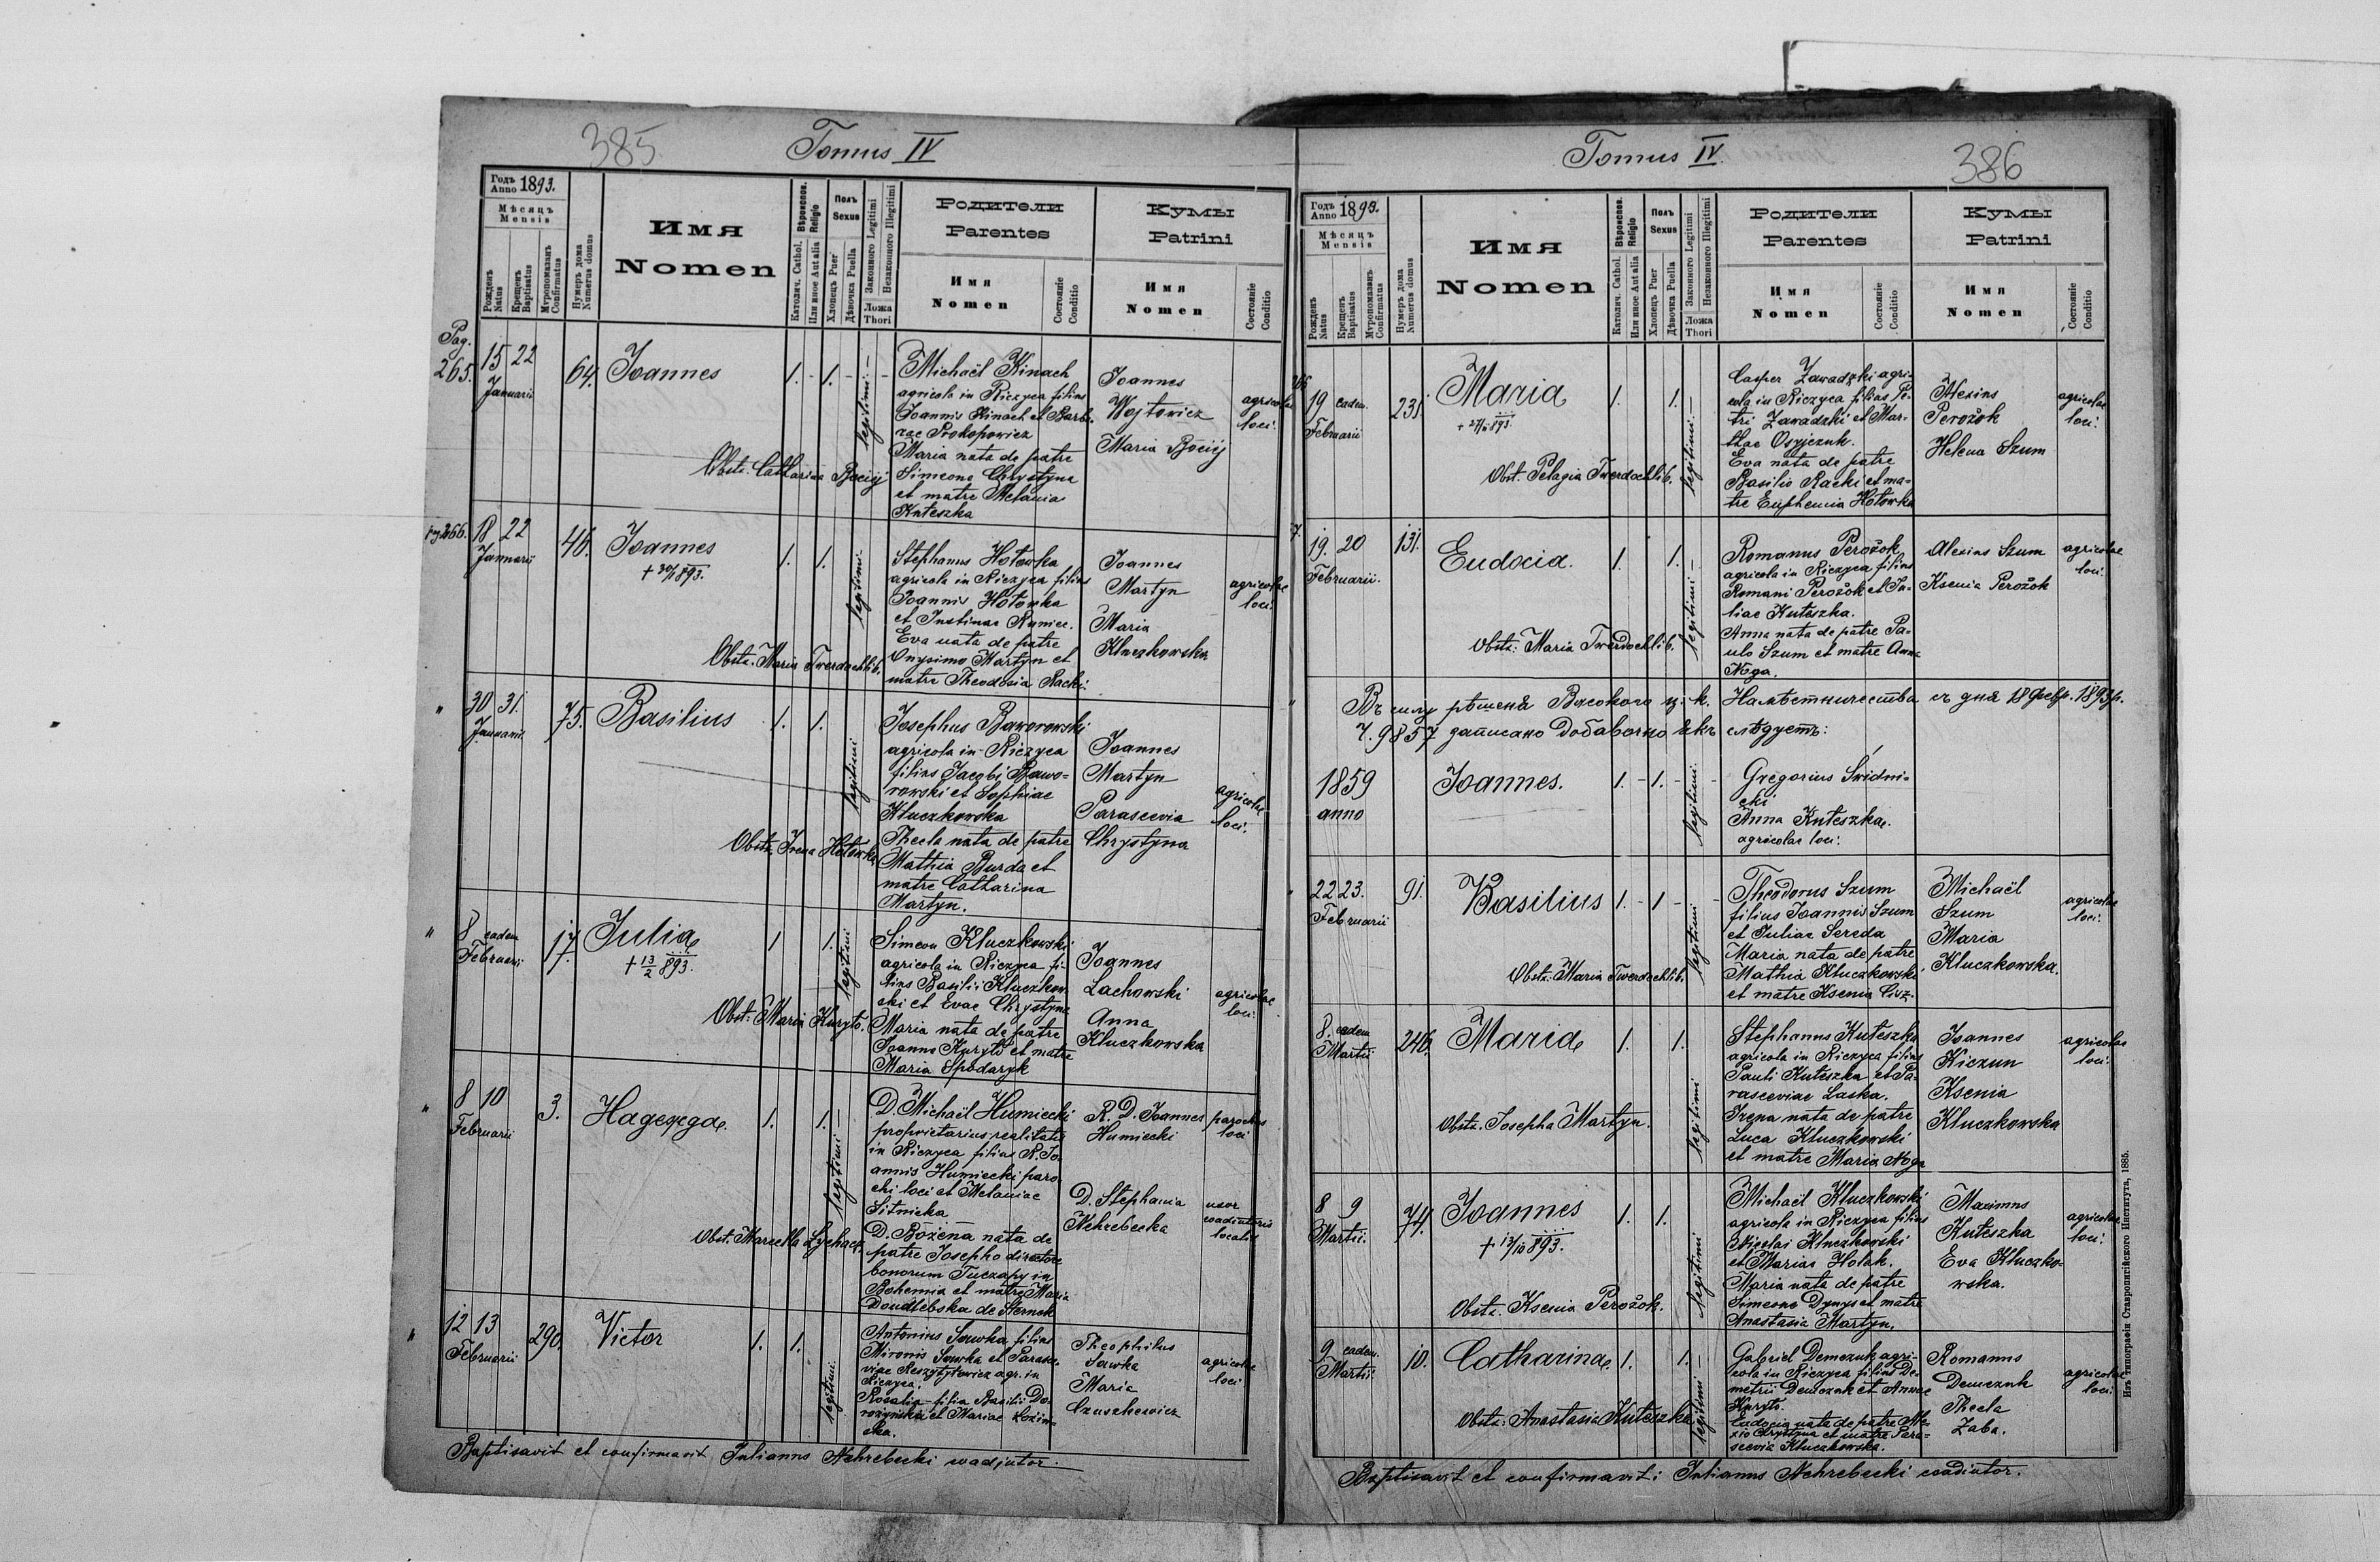 385
Tomus IV
Годъ Anno 1893.
Мѣсяцъ
Mensis
Рожденъ Natus
Крещенъ Baptisatus
Мѵропомазанъ Confirmatus
Нумеръ дома
Numerus domus
Имя
Nomen
Вѣроиспов.
Religio
Католич. Cathol.
Или иное Aut alia
Полъ
Sexus
Хлопецъ Puer
Дѣвочка Puella
Законного Legitimi
Незаконного Illegitimi
Ложа
Thori
Родители
Parentes
Имя
Nomen
Состояніе
Conditio
Кумы
Patrini
Имя
Nomen
Состояніе
Conditio
Pag.
265.
15 22
Januarii
64.
Joannes
1. - 1. - legitimi. -
Michaël Kinach
agricola in Riczyca filius
Joannis Kinach et Barba-
rae Prokopowicz
Maria nata de patre
Simeone Chrystyna
et matre Melania
Kuteszka
Joannes
Wojtowicz
Maria Bociij
agricolae
loci.
Obst. Catharina Bociij
pag 266.
18 22
Januarii
46.
Joannes
+ 30/1 893.
1. 1. legitimi.
Stephanus Hotowka
agricola in Riczyca filius
Joannis Hotowka
et Justinae Runiec.
Eva nata de patre
Onysimo Martyn et
matre Theodosia Racki.
Joannes
Martyn
Maria
Kluczkowska
agricolae
loci.
Obstz. Maria Twerdochlib.
"
30 31.
Januarii
75.
Basilius
1. 1. legitimi
Josephus Baworowski
agricola in Riczyca
filius Jacobi Bawo-
rowski et Sophiae
Kluczkowska
Thecla nata de patre
Mathia Burda et
matre Catharina
Martyn.
Joannes
Martyn
Parascevia
Chrystyna
agricolae
loci.
Obstz. Irena Hotowka
"
8 eadem
Februarii
17.
Julia
+ 13/2 893.
1 1. legitimi
Simeon Kluczkowski
agricola in Riczyca fi-
lius Basilii Kluczkow-
ski et Evae Chrystyna
Maria nata de patre
Joanne Kuryto et matre
Maria Spodaryk
Joannes
Lachowski
Anna
Kluczkowska
agricolae
loci.
Obst. Maria Kuryto.
"
8 10
Februarii
3.
1. 1. legitimi -
D. Michaël Humiecki
proprietarius realitatis
in Riczyca filius R. Jo-
annis Humiecki paro-
chi loci et Melaniae
Sitnicka
D. Božena nata de
patre Josepho directore
bonorum Tuczapy in
Bohemia et matre Maria
Doudlebska de Sternek
R. D. Joannes
Humiecki
parochus
loci
D. Stephania
Nehrebecka
uxor
coadiutoris
localis
"
12 13
Februarii
290.
Victor
1. 1. legitimi.
Antonius Sawka filius
Mironis Sawka et Parasce-
viae
agr. in
Riczyca.
Rosalia filia Basilii
et Mariae
Theophilus
Sawka
Maria
Czuszkewicz
agricolae
loci
Baptisavit et confirmavit Julianus Nehrebecki coadjutor.
Tomus IV.
386
Годъ Anno 1893.
Мѣсяцъ
Mensis
Рожденъ Natus
Крещенъ Baptisatus
Мѵропомазанъ Confirmatus
Нумеръ дома
Numerus domus
Имя
Nomen
Вѣроиспов.
Religio
Католич. Cathol.
Или иное Aut alia
Полъ
Sexus
Хлопецъ Puer
Дѣвочка Puella
Законного Legitimi
Незаконного Illegitimi
Ложа
Thori
Родители
Parentes
Имя
Nomen
Состояніе
Conditio
Кумы
Patrini
Имя
Nomen
Состояніе
Conditio
19 eadem.
Februarii
231.
Maria
1. 1. legitimi. -
Casper Zawadzki agri-
cola in Riczyca filius Pe-
tri Zawadzki et Mar-
thae Osyjczuk.
Eva nata de patre
Basilio Racki et ma-
tre Euphemia Hotowka
Alexius
Perožok
Helena Szum
agricolae
loci.
Obst. Pelagia Twerdochlib.
19. 20
Februarii.
131.
Eudocia.
1. 1. legitimi -
Romanus Perožok
agricola in Riczyca filius
Romani Perožok et Ju-
liae Kuteszka.
Anna nata de patre Pa-
ulo Szum et matre Anna
Noga.
Alexius Szum
Ksenia Perožok
agricolae
loci.
Obstz: Maria Twerdochlib.
Въ силу рѣшеня Высокого ц. к. Намѣстничества съ дня 18 февр. 1893 р.
Ч. 9857 записано добавочно якъ слѣдуетъ:
1859
anno
Joannes.
1. - 1. - legitimi. -
Gregorius Swidni-
cki
Anna Kuteszka.
agricolae loci.
22 23.
Februarii
91.
Basilius
1. - 1 - legitimi -
Theodorus Szum
filius Joannis Szum
et Juliae Sereda
Maria nata de patre
Mathia Kluczkowski
et matre Ksenia Civz.
Michaël
Szum
Maria
Kluczkowska.
agricolae
loci.
Obstz. Maria Twerdochlib.
8. eadem
Martii
246.
Maria
1. 1. legitimi
Stephanus Kuteszka
agricola in Riczyca filius
Pauli Kuteszka et Pa-
rasceviae Laska.
Irena nata de patre
Luca Kluczkowski
et matre Maria Noga
Joannes
Kiczun
Ksenia
Kluczkowska
agricolae
loci.
Obstz. Josepha Martyn.
8 9
Martii.
74.
Joannes
+ 13/10 893.
1. 1. legitimi
Michaël Kluczkowski
agricola in Riczyca filius
Nicolai Kluczkowski
et Mariae Holak.
Maria nata de patre
Simeone Dynys et matre
Anastasia Martyn.
Maximus
Kuteszka
Eva Kluczko-
wska.
agricolae
loci.
Obstz. Ksenia Perožok.
9 eadem.
Martii
10.
Catharina.
1. 1. legitimi -
Gabriel Demczuk agri-
cola in Riczyca filius De-
metrii Demczuk et Annae
Kuryto.
Eudocia nata de patre Ale-
xio Chrystyna et matre Para-
scevia Kluczkowska.
Romanus
Demczuk
Thecla
Zaba.
agricolae
loci.
Obstz: Anastasia Kuteszka
Baptisavit et confirmavit: Julianus Nehrebecki coadiutor.
Изъ типографіи Ставропигійского Института, 1885.